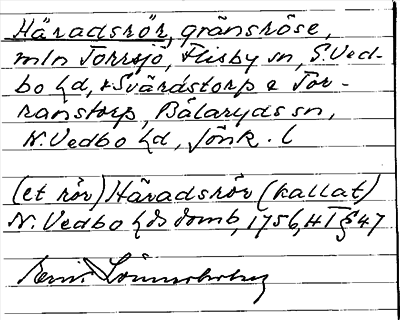 Häradsrör, gränsröse,
mln Torrsjö, Flisby sn, S. Ved-
bo hd, & Svärdstorp & Tor-
ranstorp, Bälaryds sn,
N. Vedbo hd, Jönk. l
(et rör) Häradsrör (kallat)
N. Vedbo hds domb, 1756, HT § 47